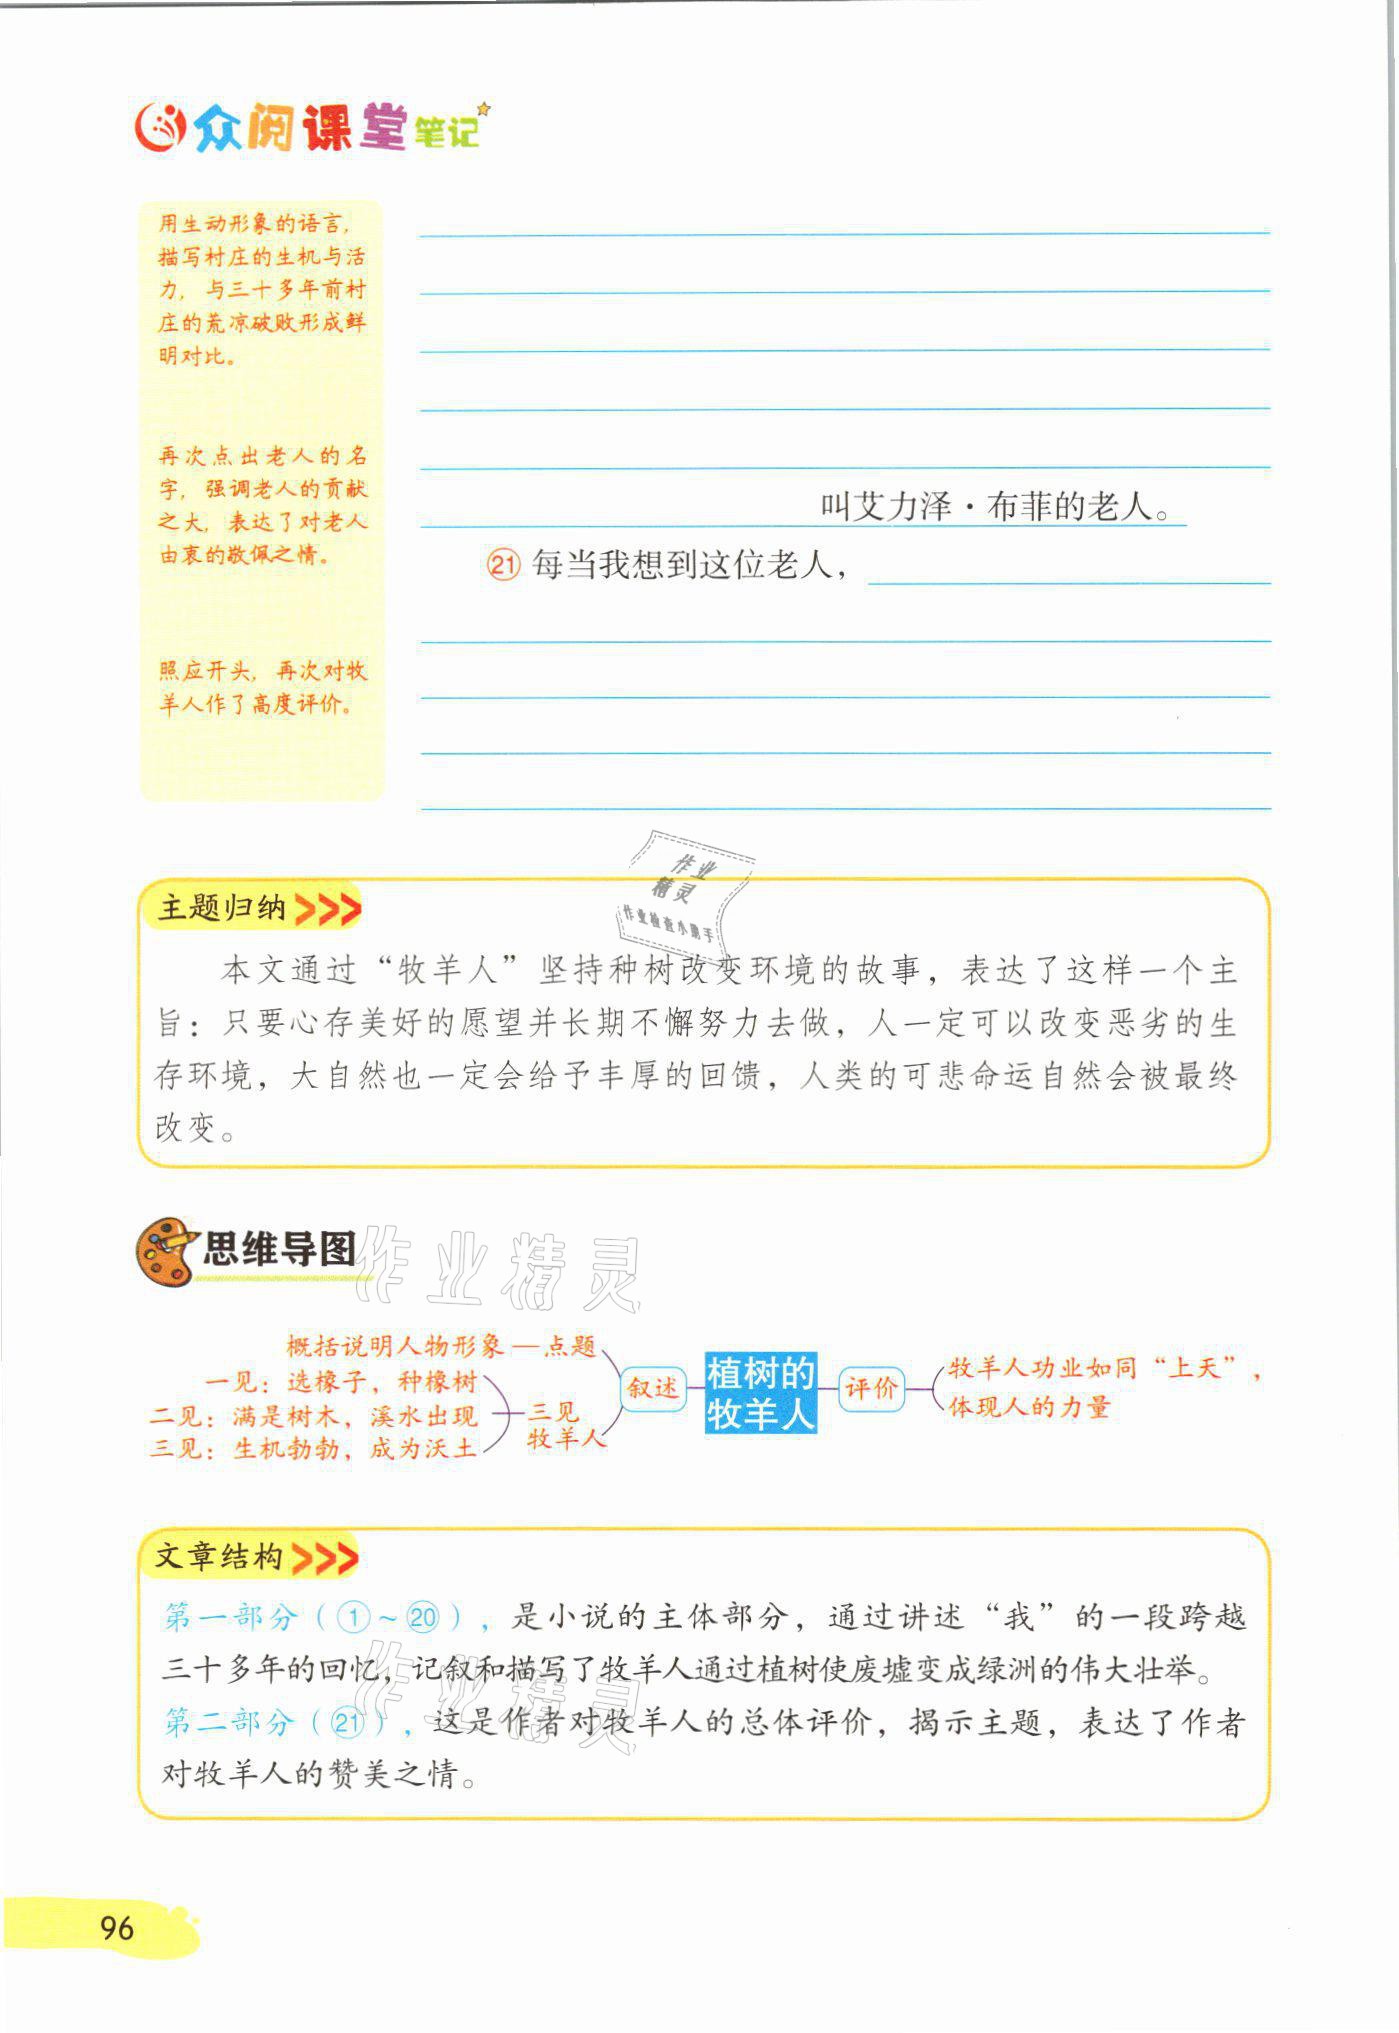 众阅课堂笔记
用生动形象的语言，
描写村庄的生机与活
力，与三十多年前村
庄的荒凉破败形成鲜
明对比。
再次点出老人的名
字，强调老人的贡献
之大，表达了对老人
由衷的敬佩之情。
照应开头，再次对牧
羊人作了高度评价。
叫艾力泽·布菲的老人。
㉑ 每当我想到这位老人，
作业
精灵
作业检查小助手
主题归纳
本文通过“牧羊人”坚持种树改变环境的故事，表达了这样一个主
旨：只要心存美好的愿望并长期不懈努力去做，人一定可以改变恶劣的生
存环境，大自然也一定会给予丰厚的回馈，人类的可悲命运自然会被最终
改变。
思维导图
作业精灵
概括说明人物形象—点题
一见：选橡子，种橡树
二见：满是树木，溪水出现
三见：生机勃勃，成为沃土
三见
牧羊人
叙述
植树的
牧羊人
评价
牧羊人功业如同“上天”，
体现人的力量
文章结构
第一部分（①～⑳），是小说的主体部分，通过讲述“我”的一段跨越
三十多年的回忆，记叙和描写了牧羊人通过植树使废墟变成绿洲的伟大壮举。
第二部分（㉑），这是作者对牧羊人的总体评价，揭示主题，表达了作者
对牧羊人的赞美之情。
作业精灵
96